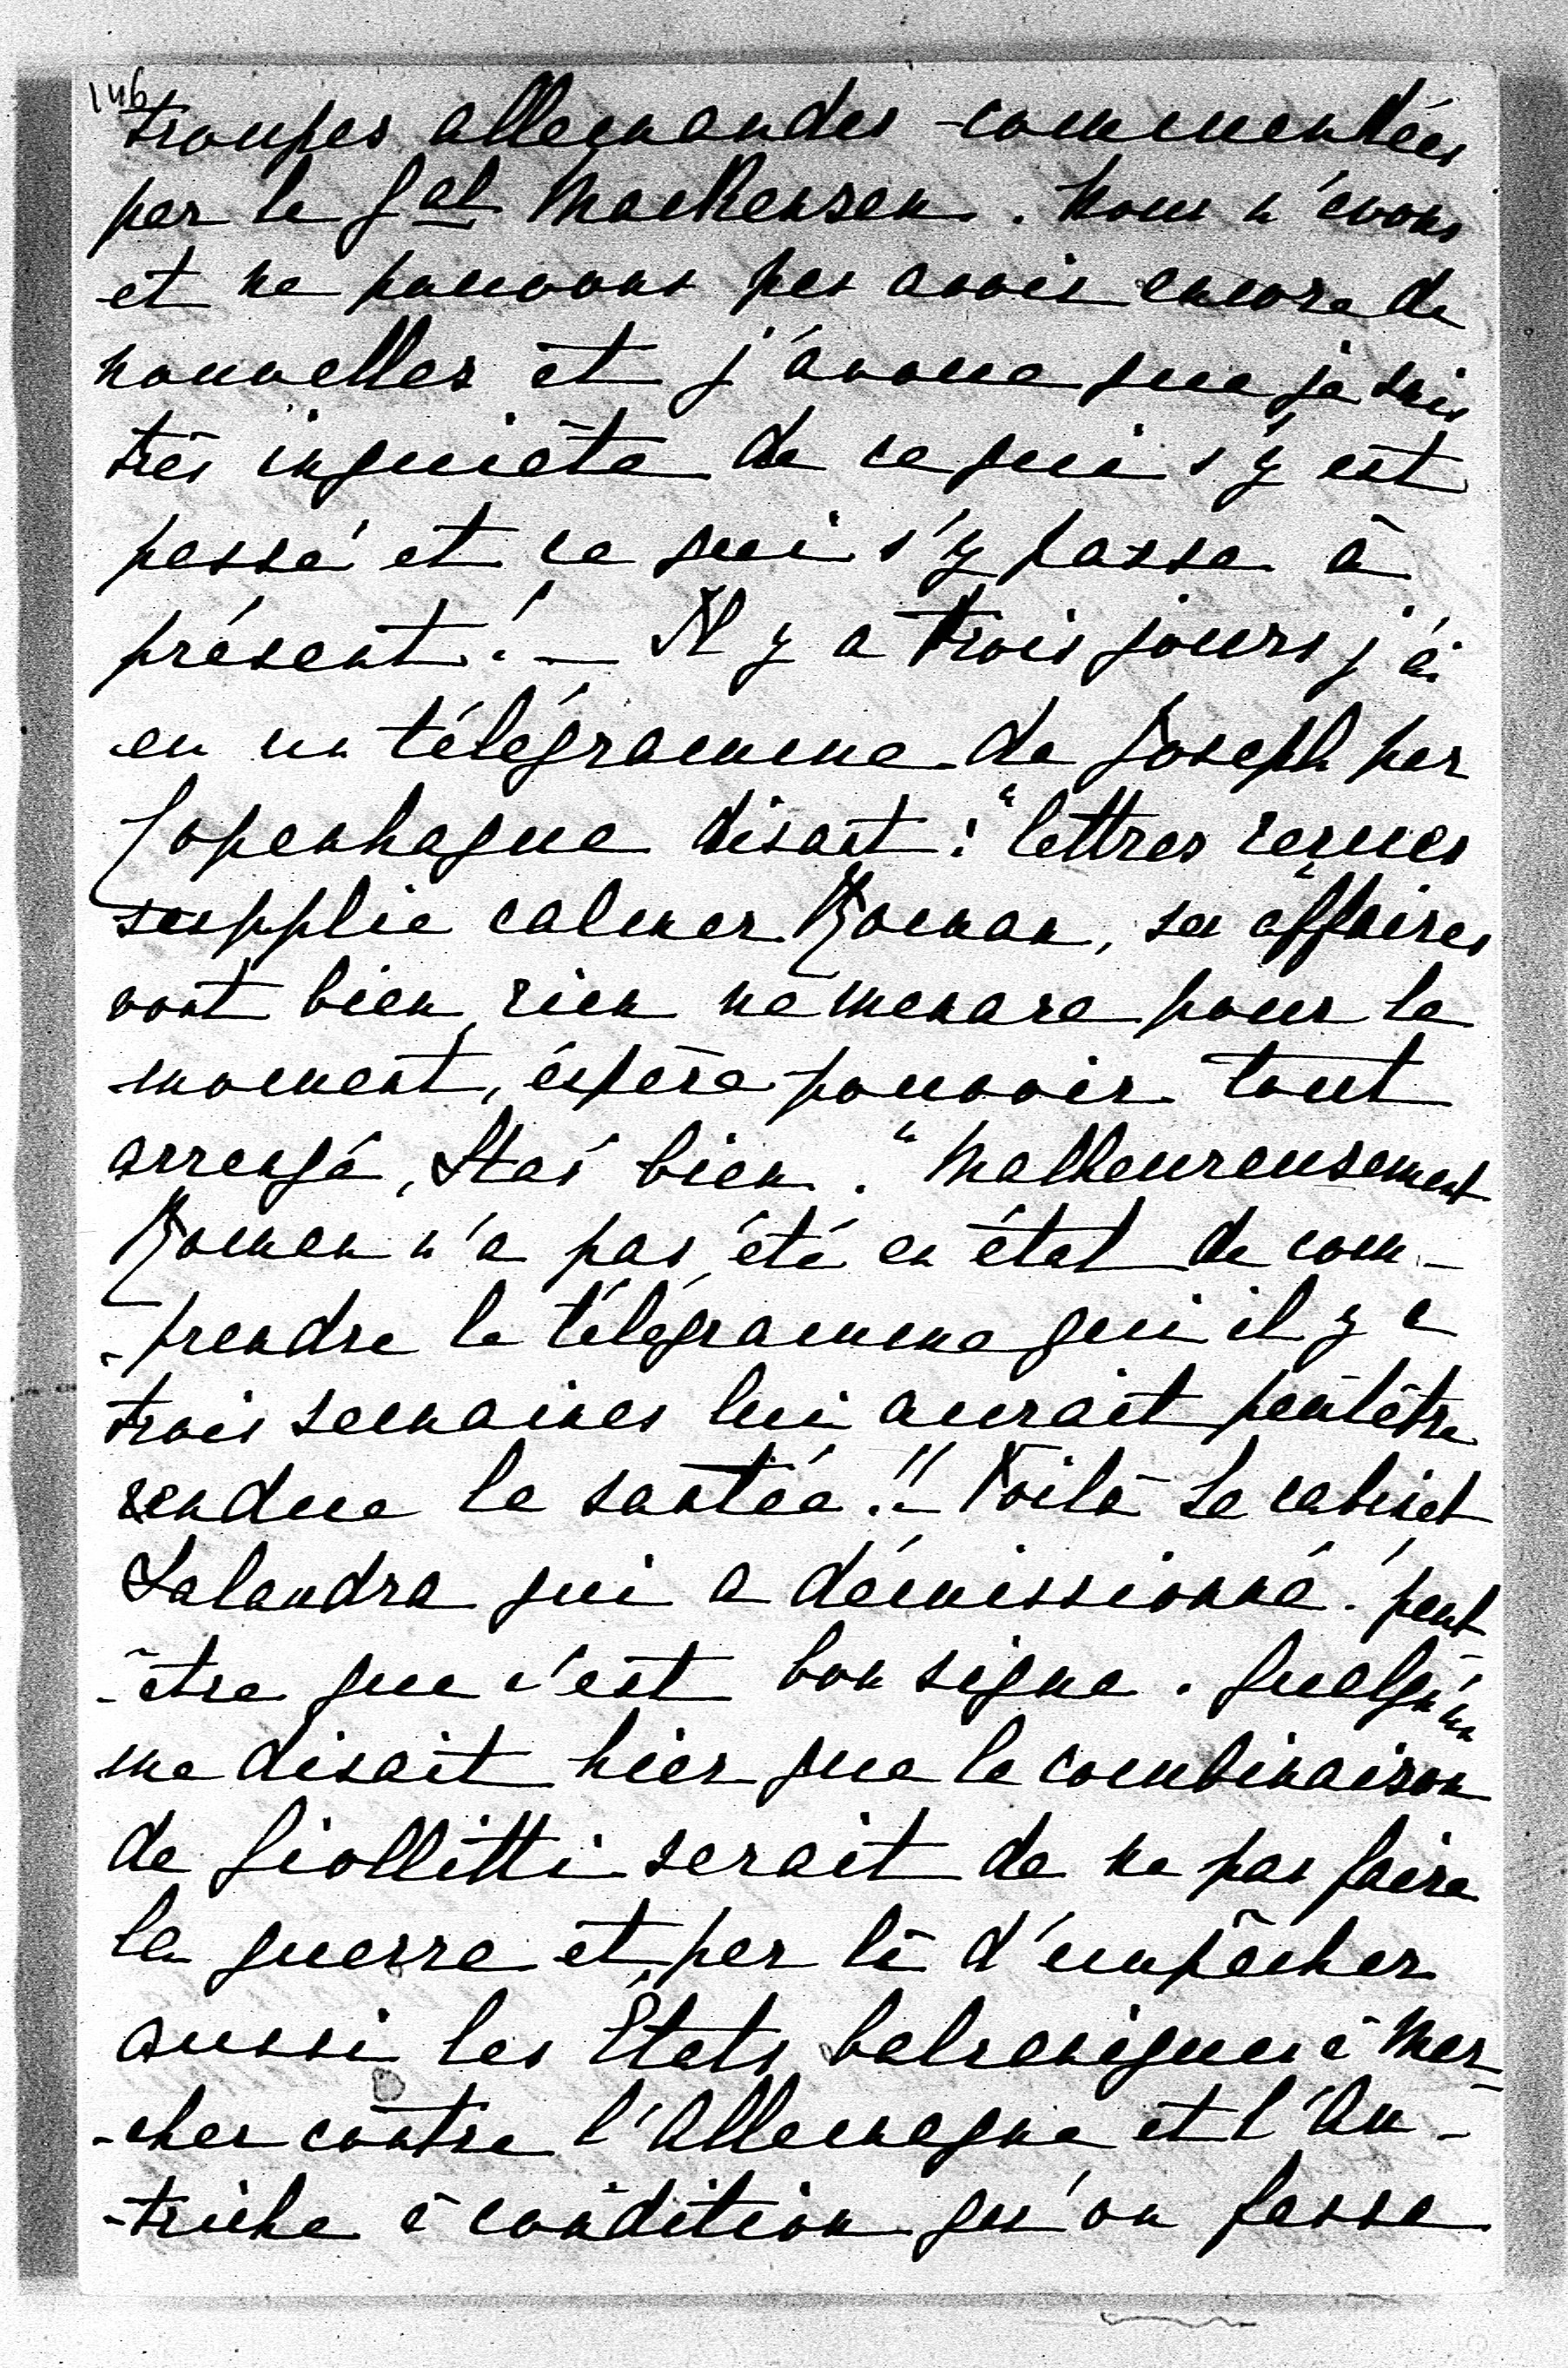 146
troupes allemandes commendées
par le Gal Mackensen. Nous n'avons
et ne pouvons pas avoir encore de
nouvelles et j'avoue que je suis
très inquiète de ce qui s'y est
passé et ce qui s'y passe à
présent! — Il y a trois jours j'ai
eu un télégramme de Joseph par
Copenhague disant: "lettres reçues
supplie calmer Roman, ses affaires
vont bien, rien ne menace pour le
moment, éspère pouvoir tout
arrengé, Staś bien." Malheureusement
Roman n'a pas été en état de com-
-prendre le télégramme qui il y a
trois semaines lui aurait peutêtre
rendue la santée!! — Voilà le cabinet
Salandra qui a démissionné! peut
-être que c'est bon signe. Quelqu'un
me disait hier que la combinaison
de Giollitti serait de ne pas faire
la guerre et par là d'empêcher
aussi les États balcaniques à mar-
-cher contre l'Allemagne et l'Au-
-triche à condition qu'on fasse